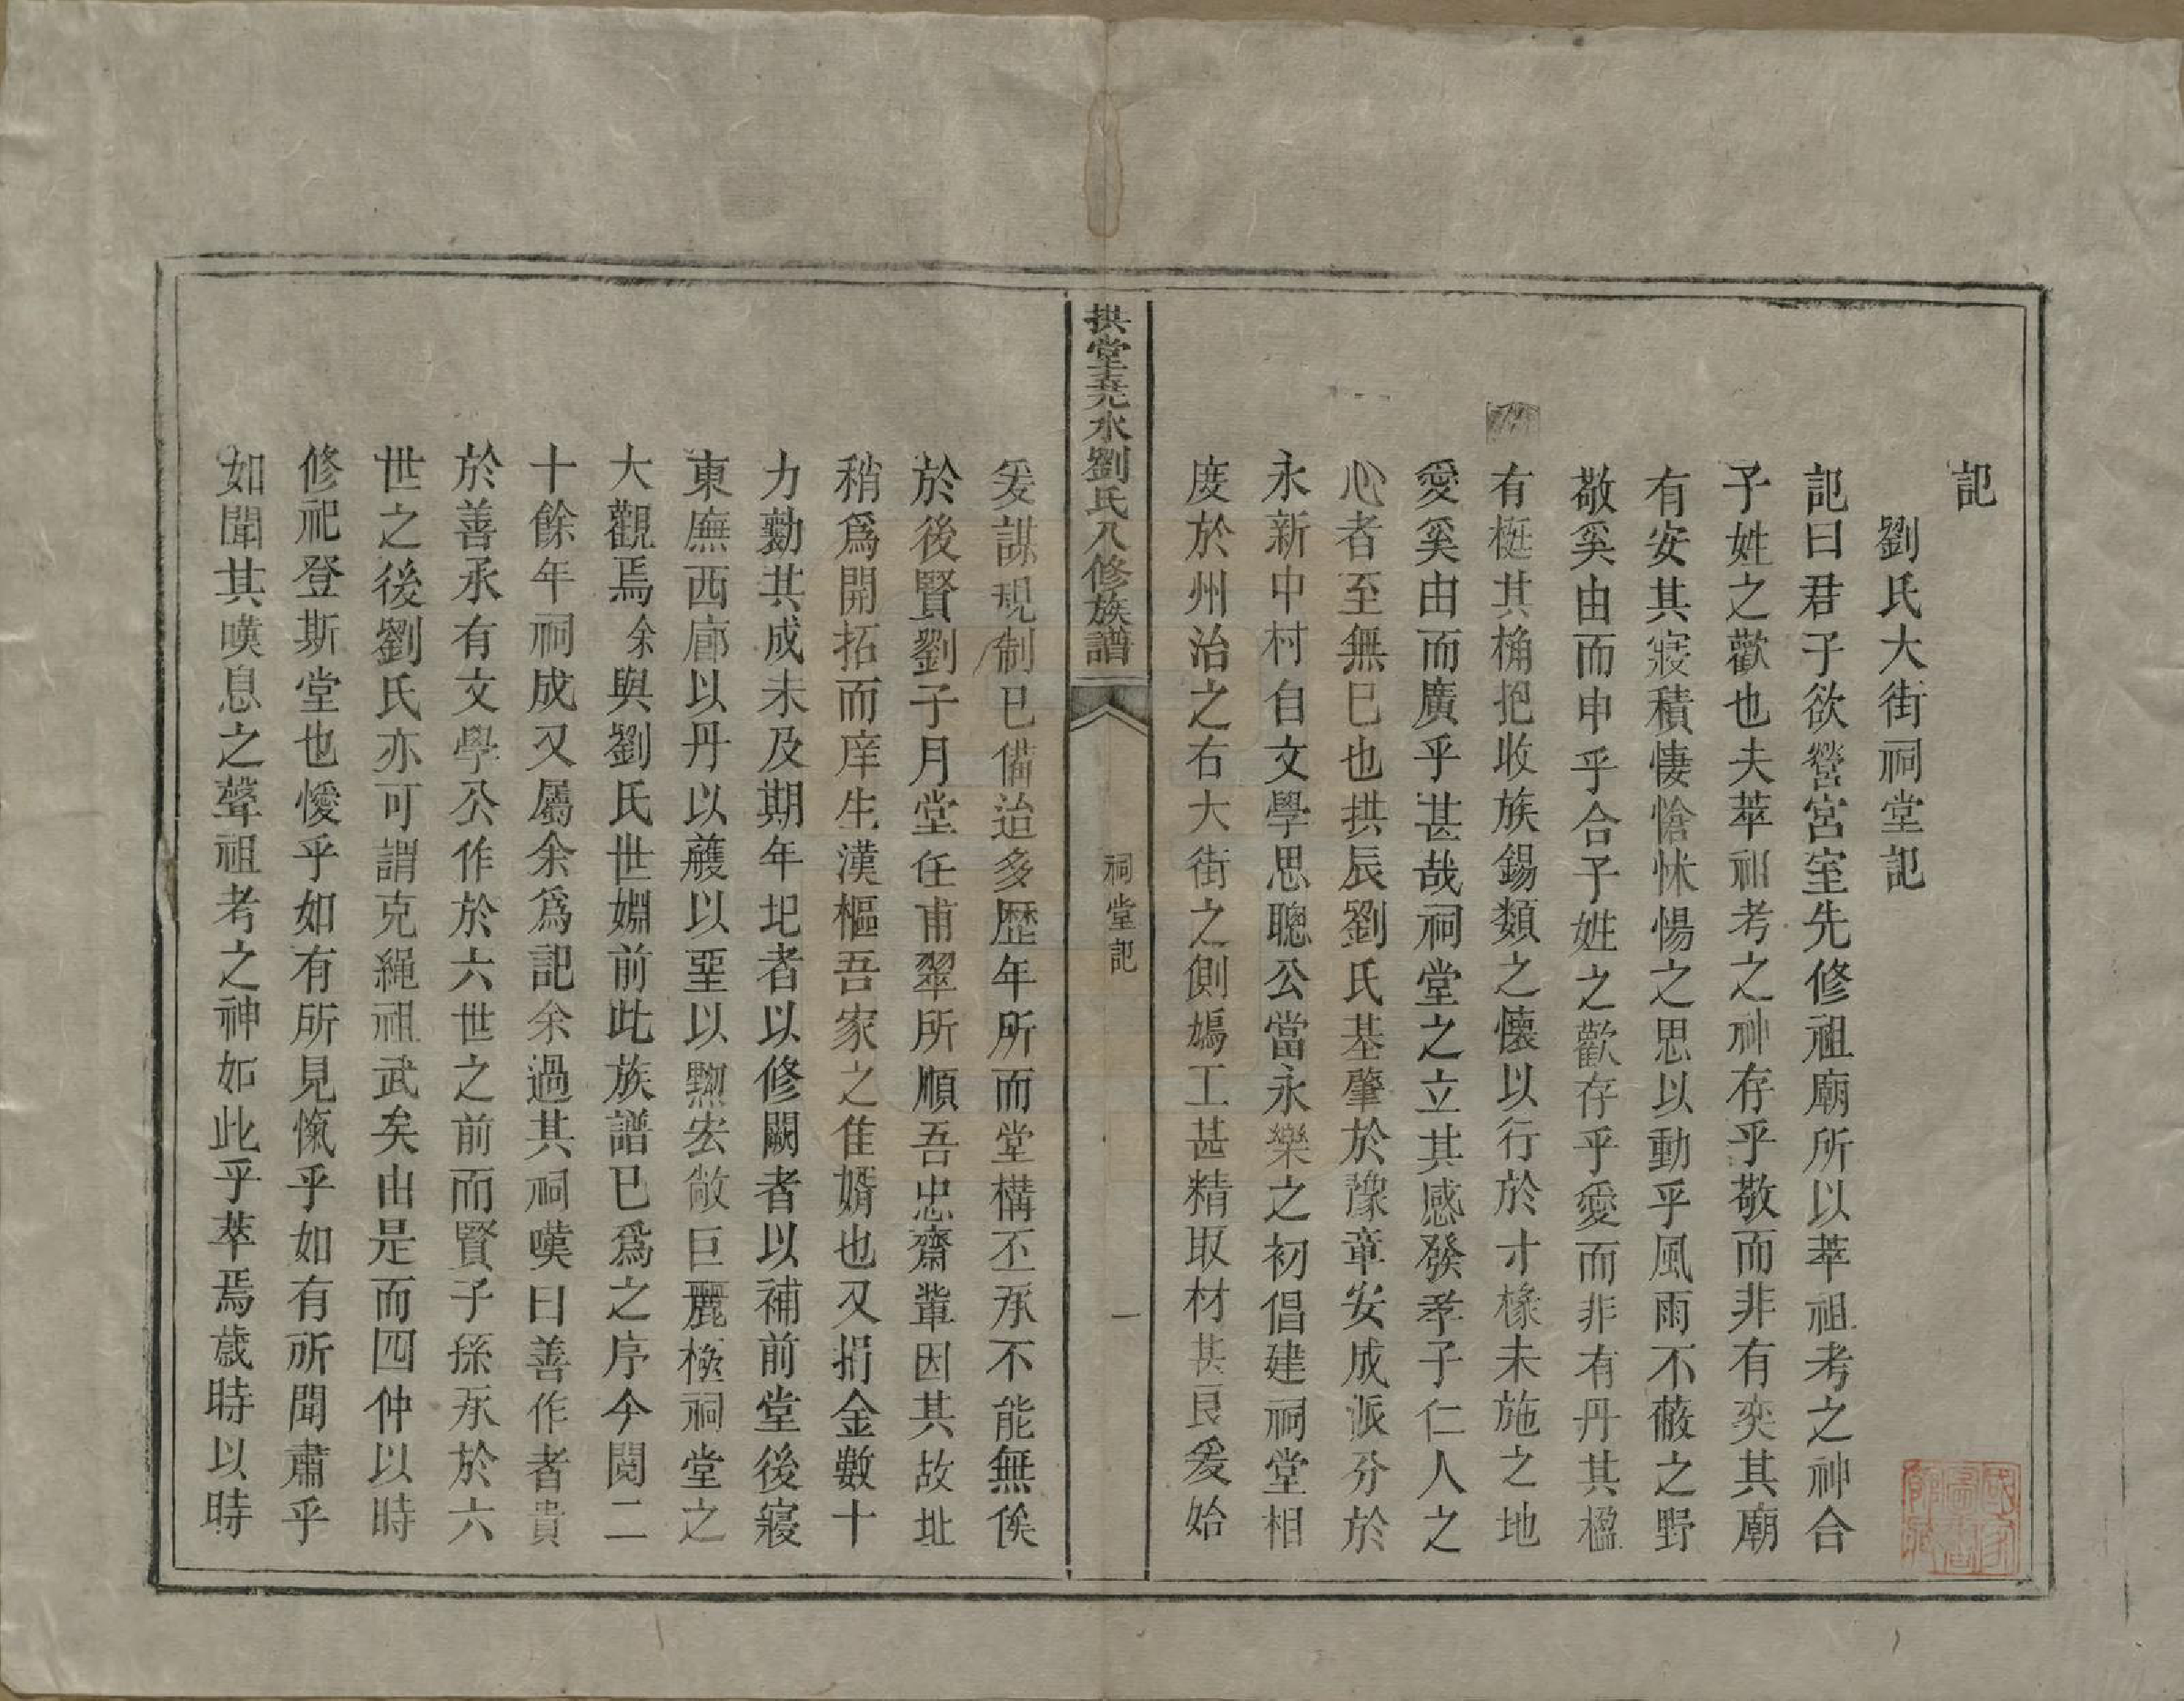 記
劉氏大街祠堂記
記曰君子欲營宮室先修祖廟所以萃祖考之神合
予姓之歡也夫萃祖考之神存乎敬而非有奕其廟
有安其寢積悽愴怵惕之思以動乎風雨不蔽之野
敬奚由而申乎合子姓之歡存乎愛而非有丹其楹
有梴其桷抱收族錫類之懷以行於寸椽未施之地
愛奚由而廣乎甚哉祠堂之立其感發孝子仁人之
心者至無巳也拱辰劉氏基肇於豫章安成派分於
永新中村自文學思聰公當永樂之初倡建祠堂相
度於州治之右大街之側鳩工甚精取材甚良爰始
爰謀規制已備迨多歴年所而堂構丕承不能無俟
於後賢劉子月堂任甫翠所順吾忠齋輩因其故址
稍爲開拓而庠生漢樞吾家之隹婿也又捐金數十
力勷其成未及期年圯者以修闕者以補前堂後寢
東廡西廊以丹以雘以堊以黝宏敞巨麗極祠堂之
大觀焉余與劉氏世婣前此族譜已爲之序今閱二
十餘年祠成又屬余爲記余過其祠嘆曰善作者貴
於善承有文學公作於六世之前而賢子孫承於六
世之後劉氏亦可謂克繩祖武矣由是而四仲以時
修祀登斯堂也僾乎如有所見愾乎如有所聞肅乎
如聞其嘆息之聲祖考之神如此乎萃焉歲時以時
拱堂堯水劉氏八修族譜
祠堂記
一